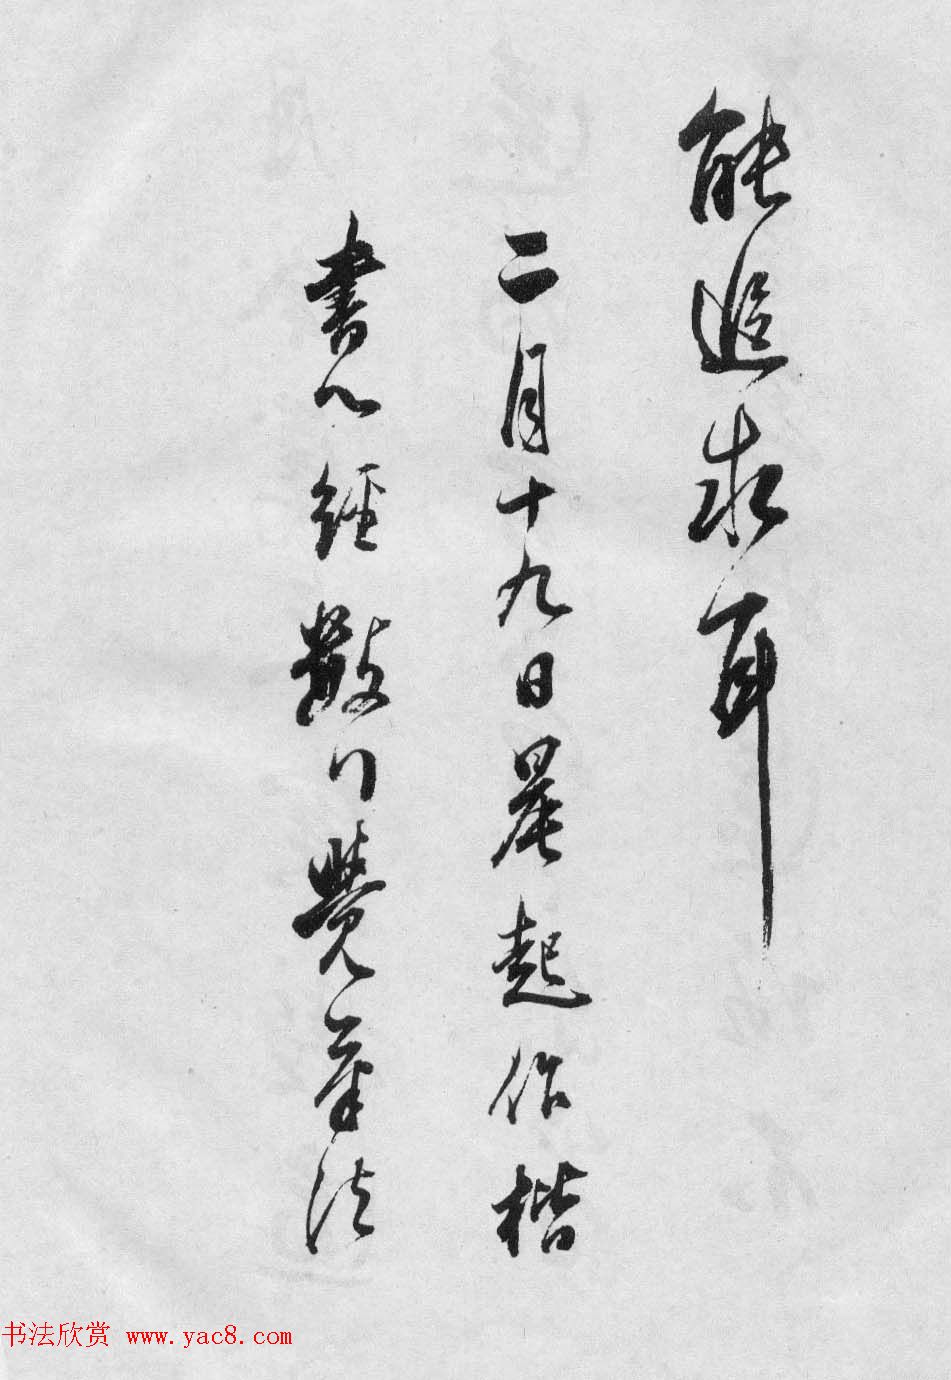 能追求耳
二月十九日晨起作楷
書心經數行覺筆法
书法欣赏 www.yac8.com